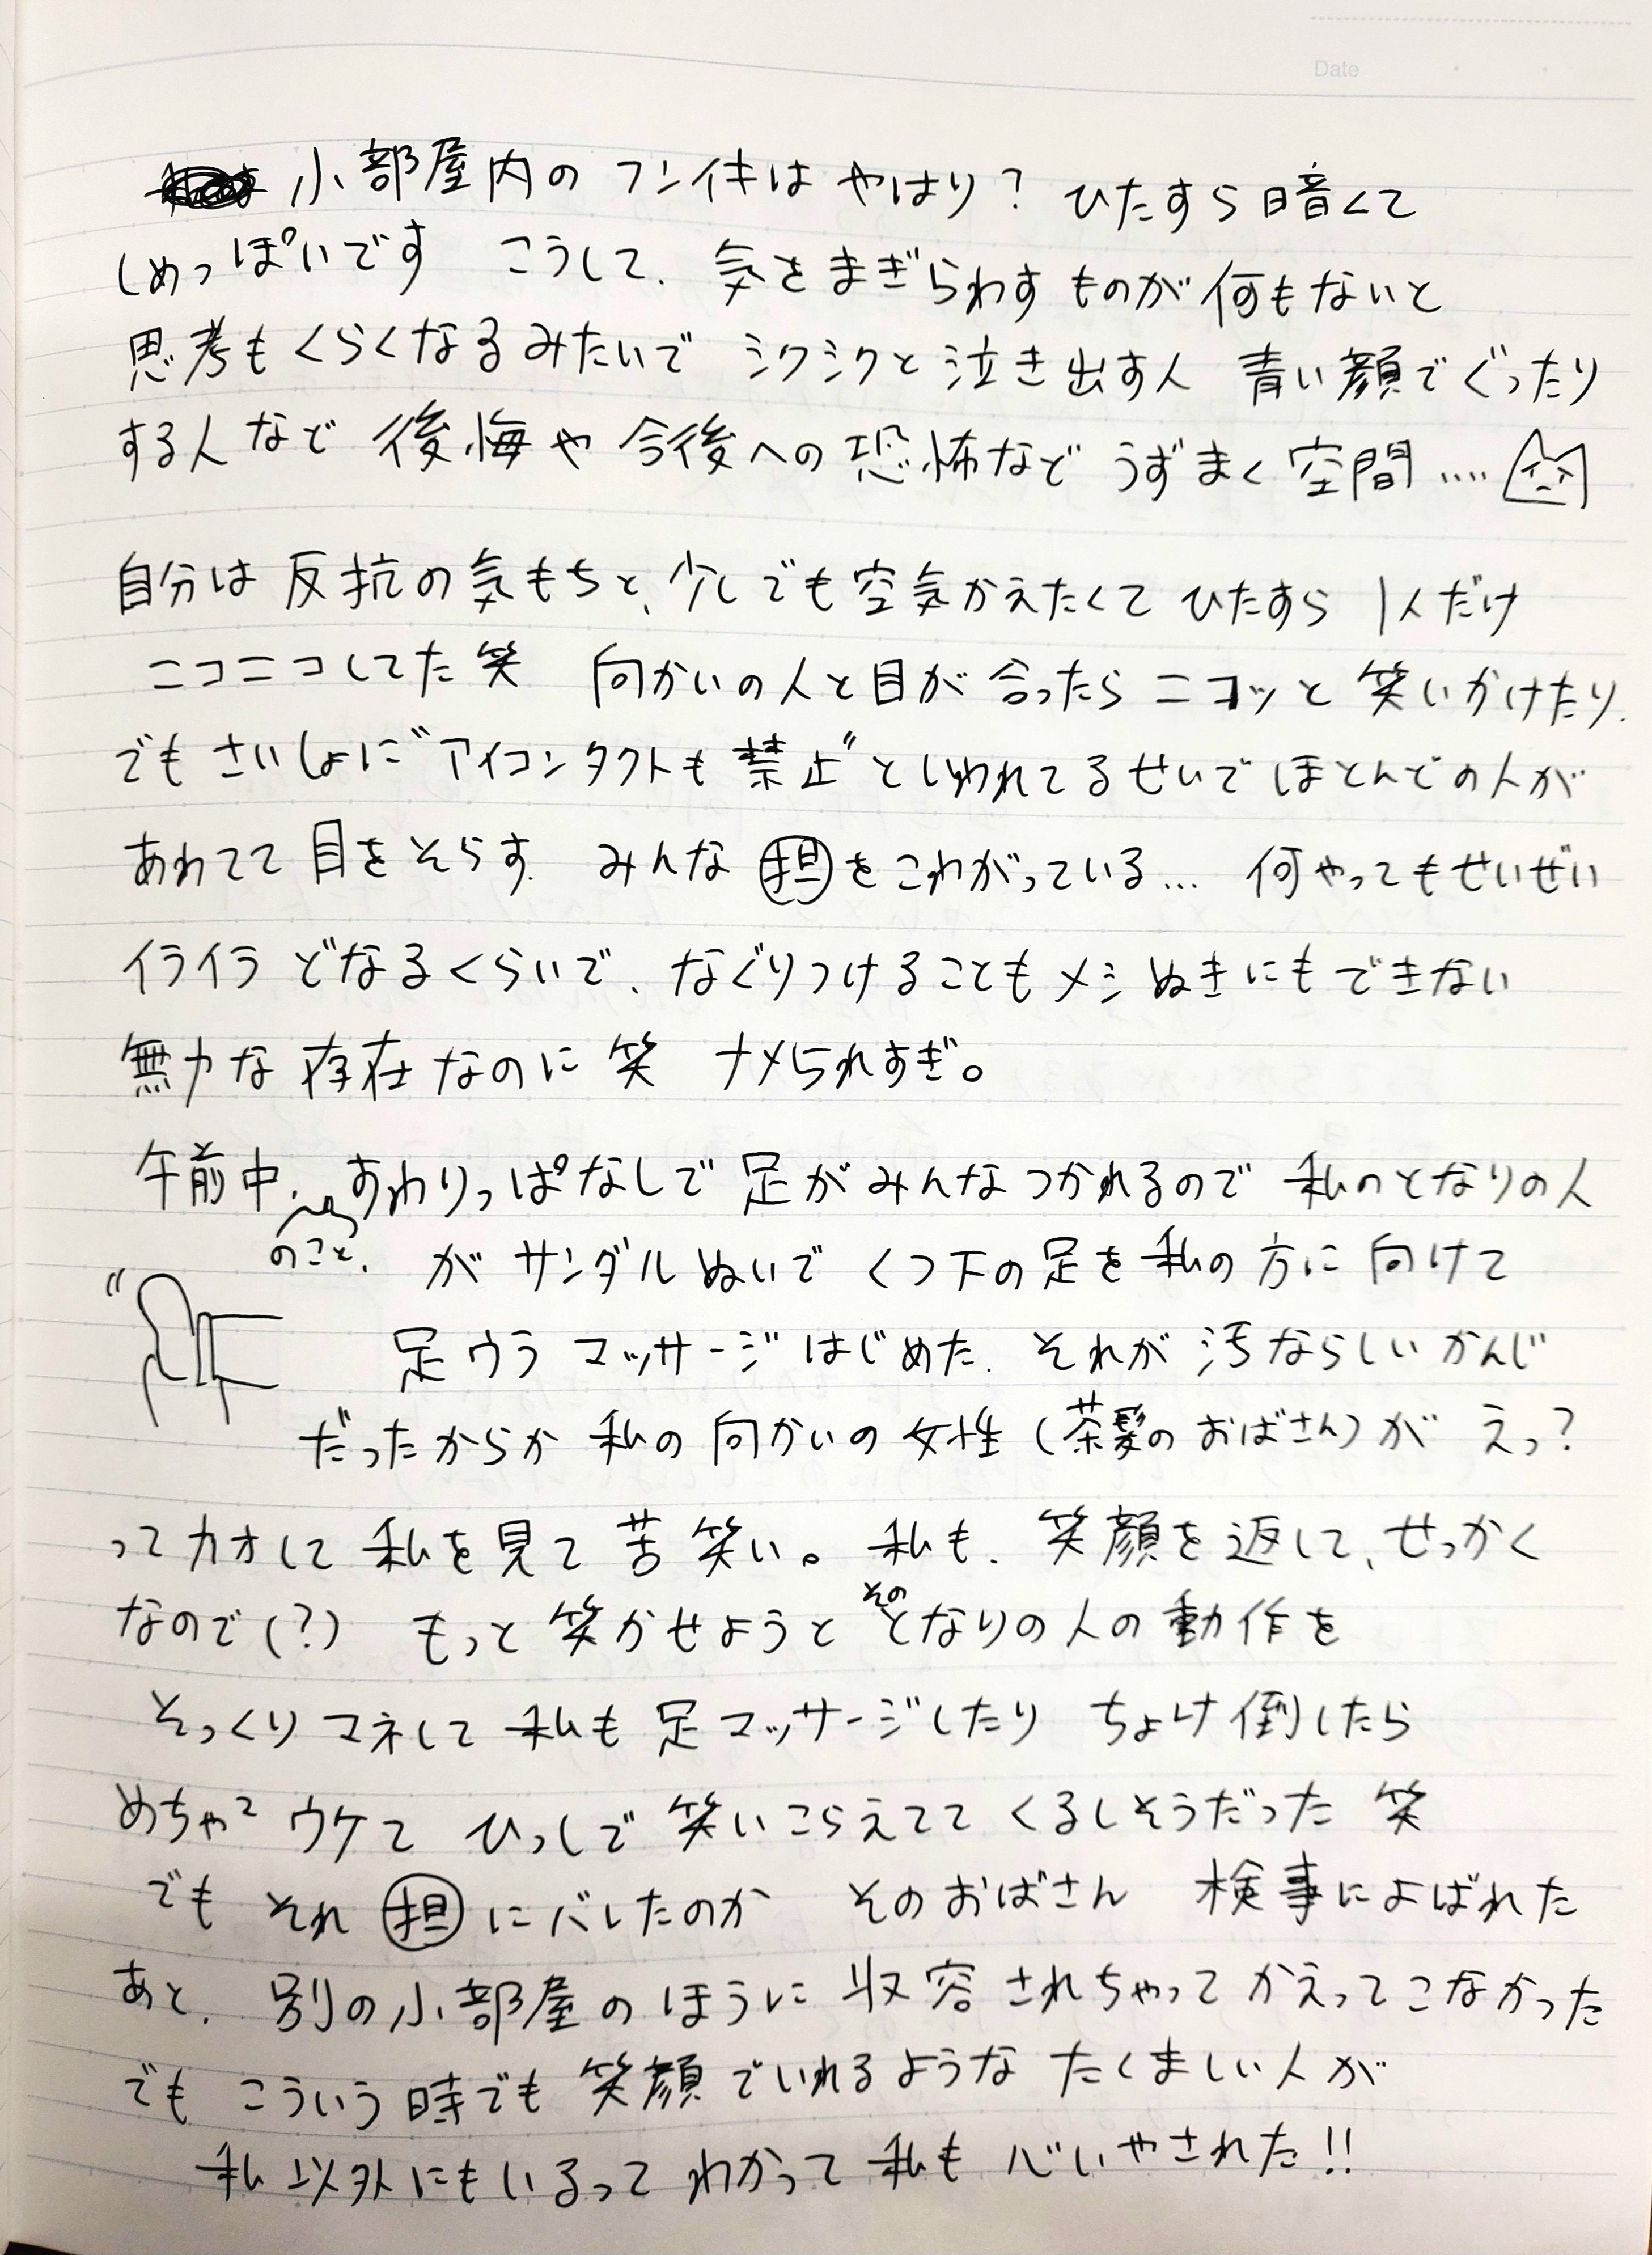 Date
小部屋内のフンイキは やはり？ ひたすら暗くて
しめっぽいです こうして、気をまぎらわすものが何もないと
思考もくらくなるみたいで シクシクと泣き出す人 青い顔でぐったり
する人など 後悔や今後への恐怖など うずまく空間....
自分は反抗の気もちと、少しでも空気かえたくて ひたすら 1人だけ
ニコニコしてた笑 向かいの人と目が合ったらニコッと笑いかけたり.
でもさいしょに"アイコンタクトも禁止"といわれてるせいでほとんどの人が
あわてて目をそらす. みんな担をこわがっている... 何やってもせいぜい
イライラどなるくらいで、なぐりつけることもメシぬきにもできない
無力な存在なのに笑 ナメられすぎ。
午前中、すわりっぱなしで足がみんなつかれるので 私のとなりの人
のこと、
がサンダルぬいで くつ下の足を私の方に向けて
足ウラマッサージはじめた. それが汚ならしいかんじ
だったからか 私の向かいの女性(茶髪のおばさん)が えっ？
ってカオして私を見て苦笑い。 私も、笑顔を返して、せっかく
なので(？) もっと笑かせようとそのとなりの人の動作を
そっくりマネして 私も足マッサージしたり ちょけ倒したら
めちゃ2 ウケて ひっしで笑いこらえてて くるしそうだった 笑
でも それ担にバレたのか そのおばさん 検事によばれた
あと、別の小部屋のほうに収容されちゃって かえってこなかった
でも こういう時でも笑顔でいれるような たくましい人が
私以外にもいるって わかって私も 心いやされた!!